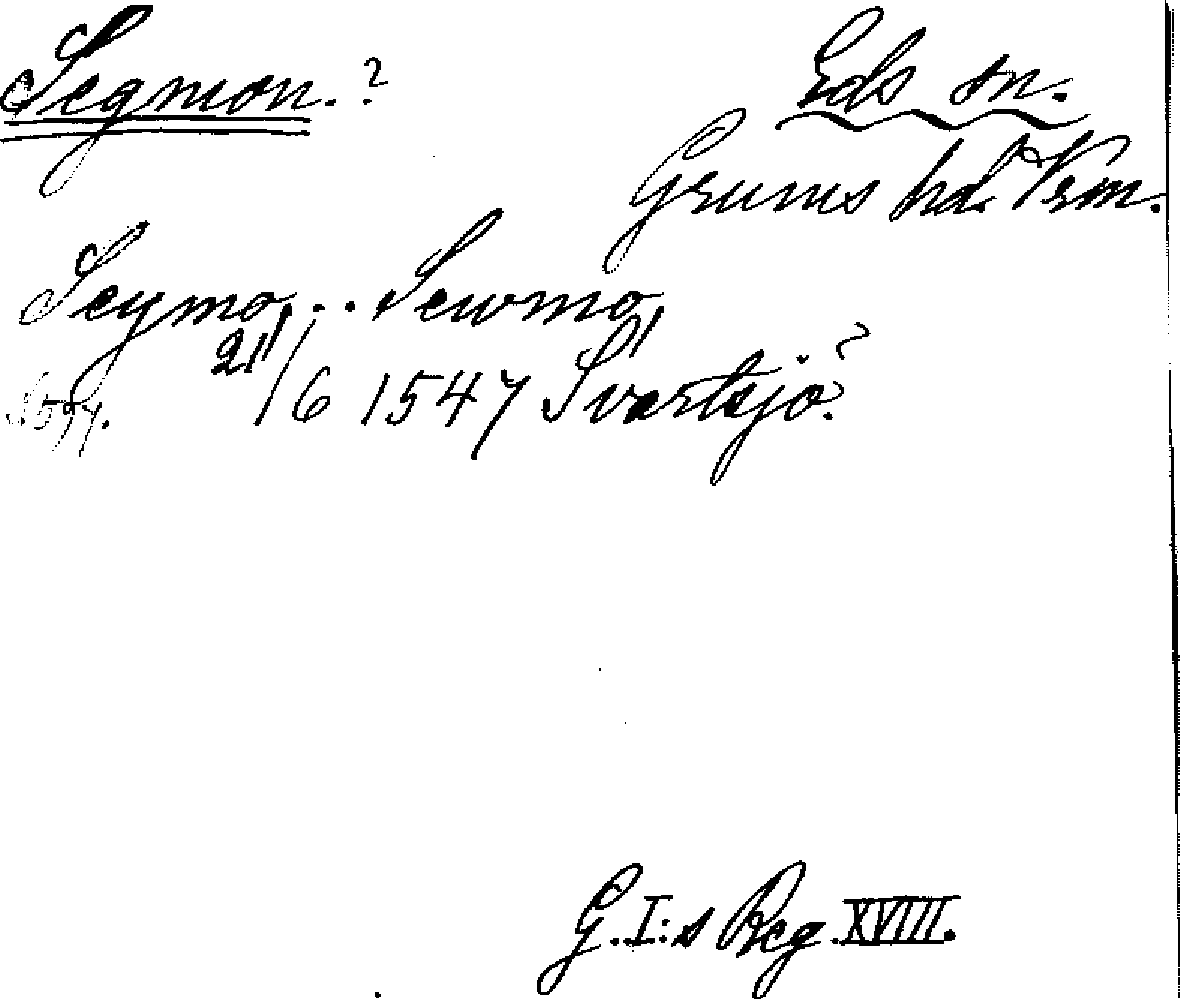 Segmon. ?
Eds sn.
Grums hd. Vrm.
Seymo,, .. Sewmo,,
21/6 1547 Svartsjö?
S. 577.
G. I:s Reg. XVIII.